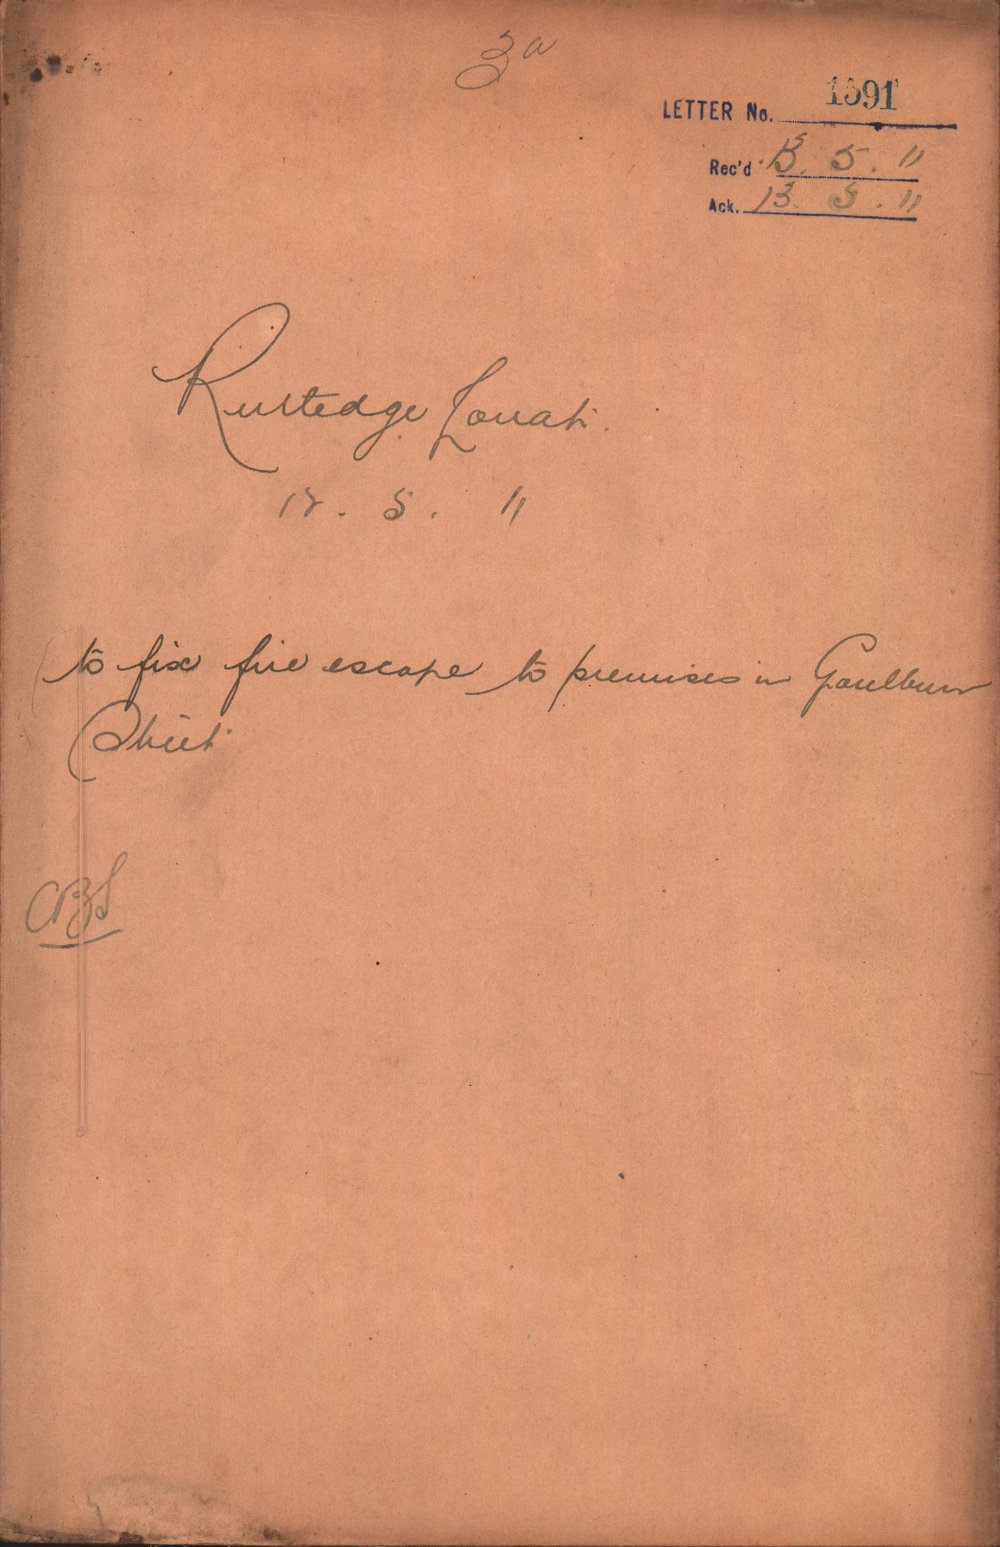 3a
LETTER No. 1591
Rec'd 13. 5. 11
Ack. 13. 5. 11
Rutledge
12. 5. 11
to fix fire escape to premises in Goulburn
Street